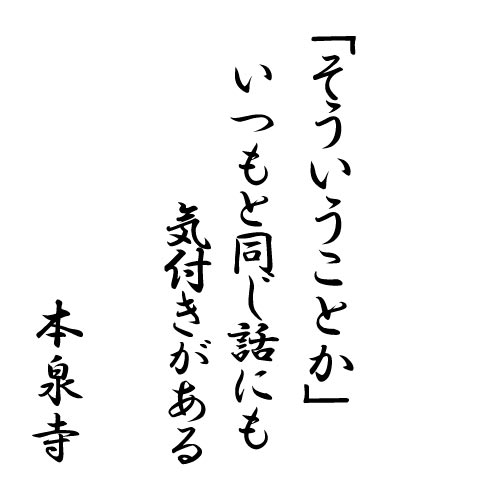 「そういうことか」
いつもと同じ話にも
気付きがある
本泉寺